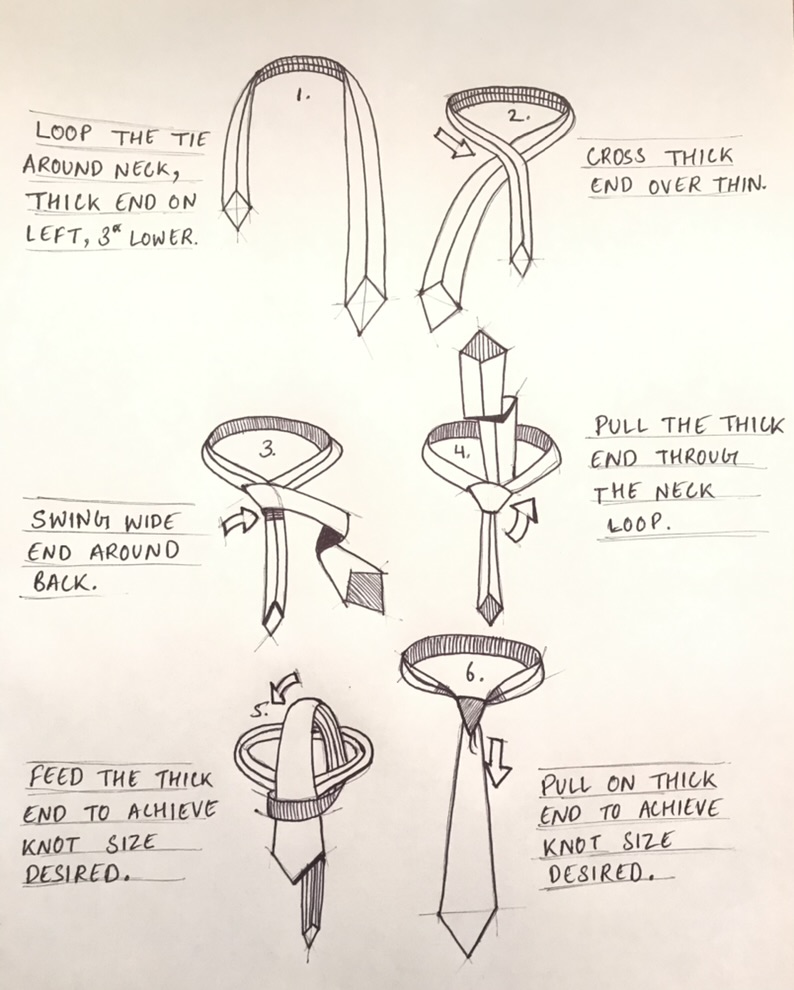 1.
LOOP THE TIE
AROUND NECK,
THICK END ON
LEFT, 3" LOWER.
2.
CROSS THICK
END OVER THIN.
3.
SWING WIDE
END AROUND
BACK.
4.
PULL THE THICK
END THROUG
THE NECK
LOOP.
5.
FEED THE THICK
END TO ACHIEVE
KNOT SIZE
DESIRED.
6.
PULL ON THICK
END TO ACHIEVE
KNOT SIZE
DESIRED.